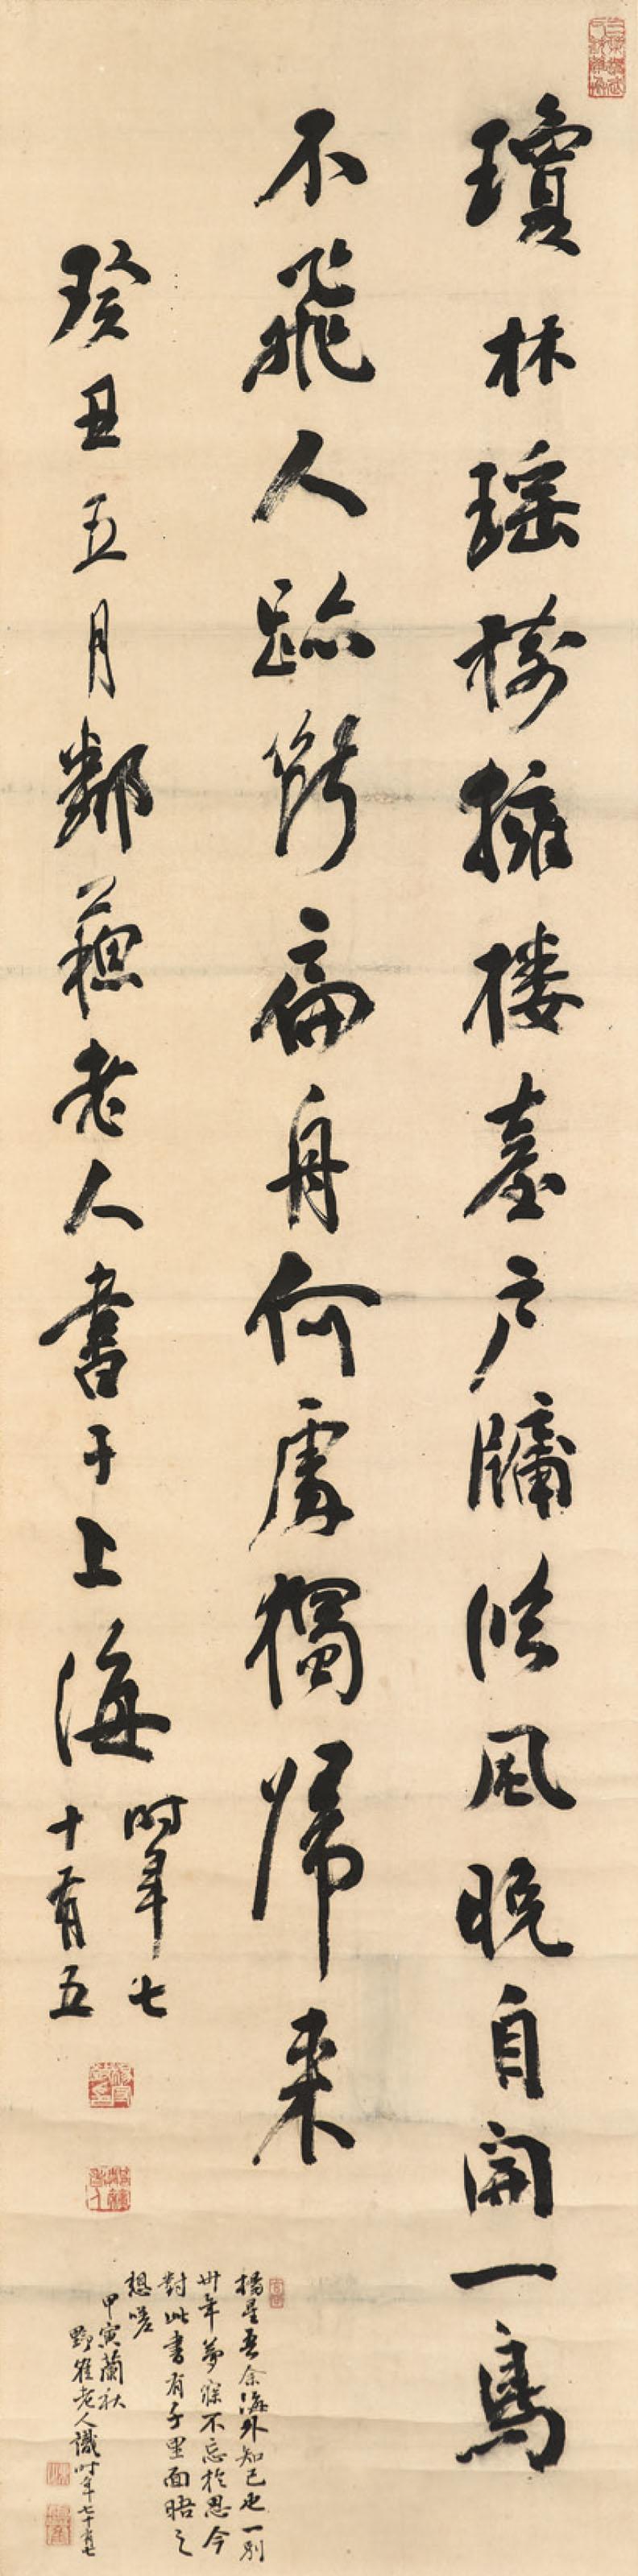 瓊林瑶樹擁楼臺户牖臨風晚自開一鳥
不飛人跡断扁舟何處獨歸来
癸丑五月鄰蘇老人書于上海
時年七
十有五
楊星吾余海外知己也一別
卅年夢寐不忘於思今
對此書有千里面晤之
想嗟
甲寅蘭秋
野隺老人識時年七十有七